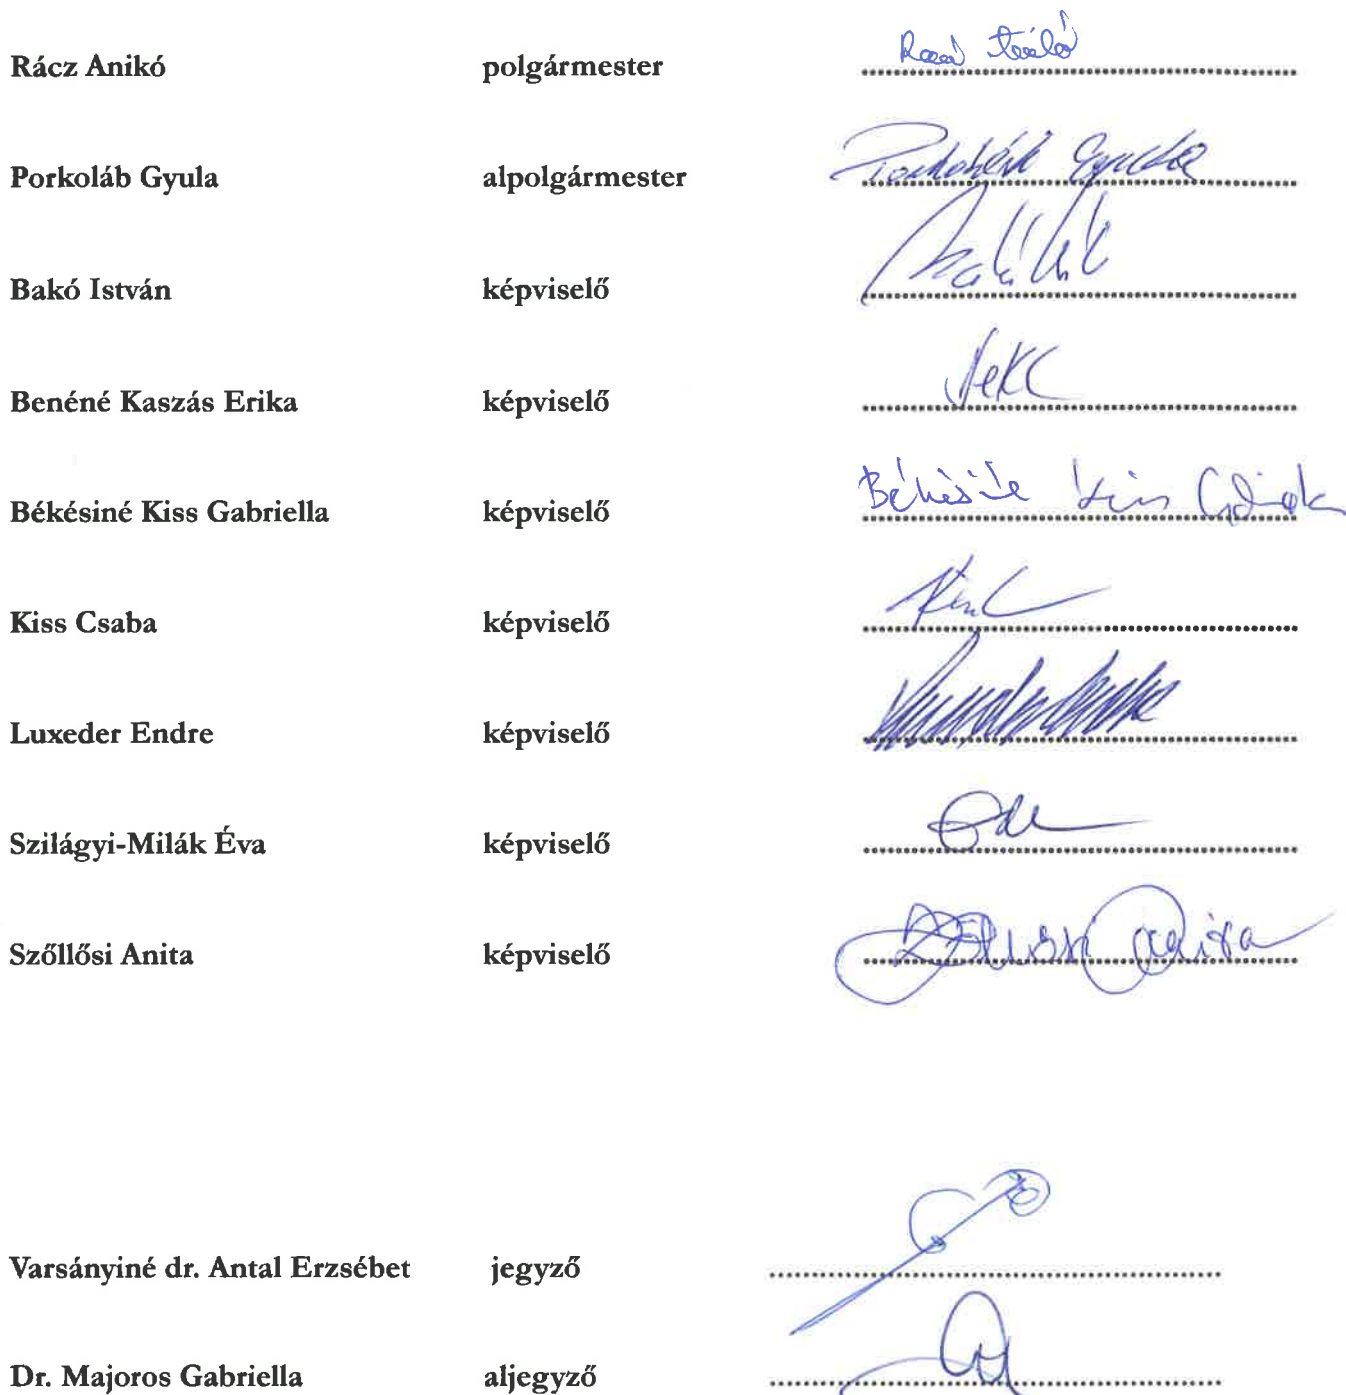 Rácz Anikó polgármester
Porkoláb Gyula alpolgármester Porkoláb Gyula
Bakó István képviselő
Benéné Kaszás Erika képviselő
Békésiné Kiss Gabriella képviselő Békésiné Kiss Gabriella
Kiss Csaba képviselő
Luxeder Endre képviselő
Szilágyi-Milák Éva képviselő
Szőllősi Anita képviselő Szőllősi Anita
Varsányiné dr. Antal Erzsébet jegyző
Dr. Majoros Gabriella aljegyző